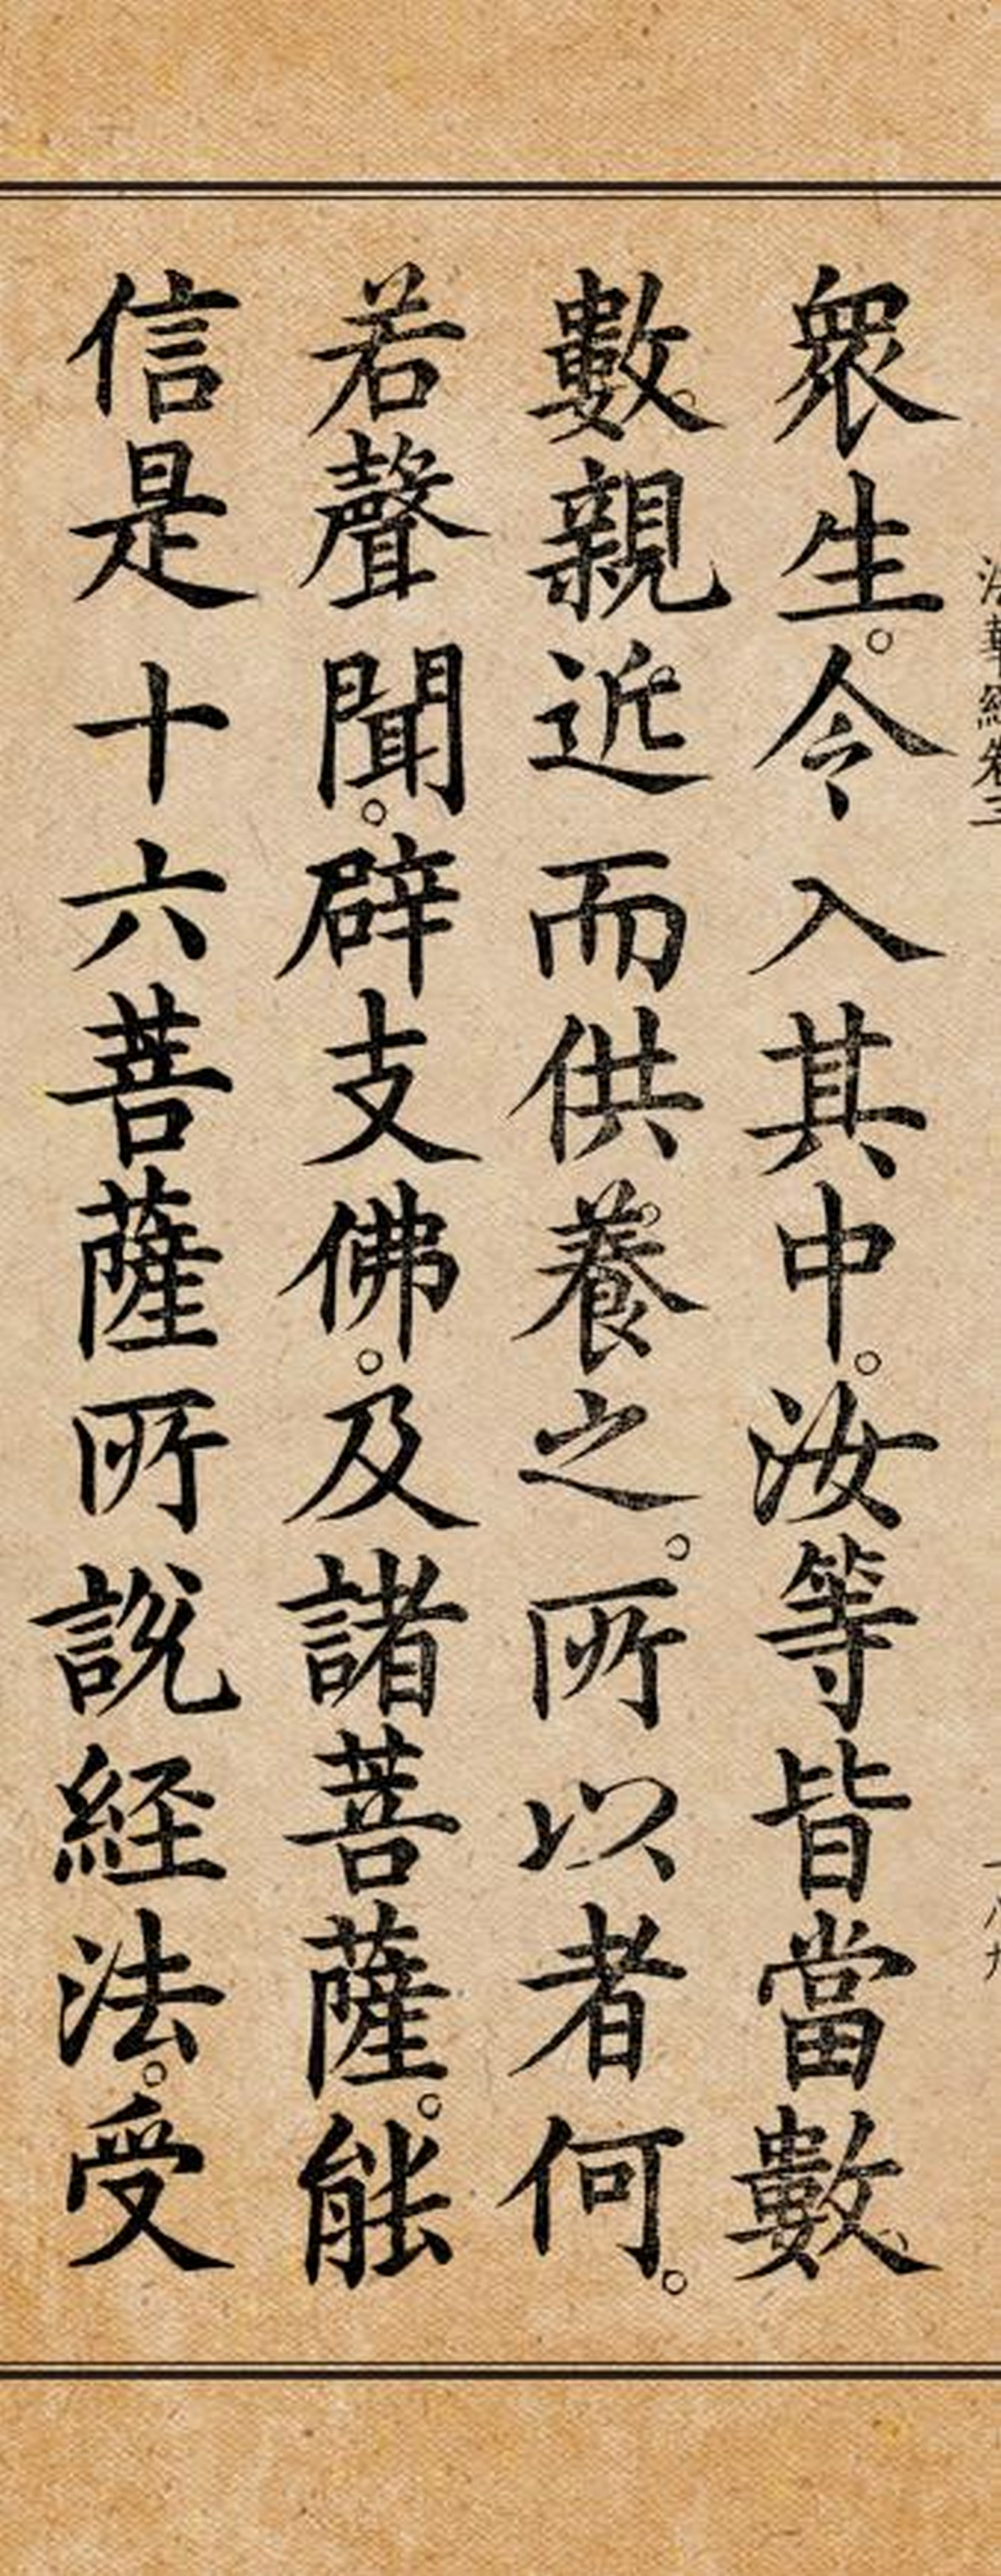 法華經卷三
衆生。令入其中。汝等皆當數
數親近而供養之。所以者何。
若聲聞。辟支佛。及諸菩薩。能
信是十六菩薩所說経法。受